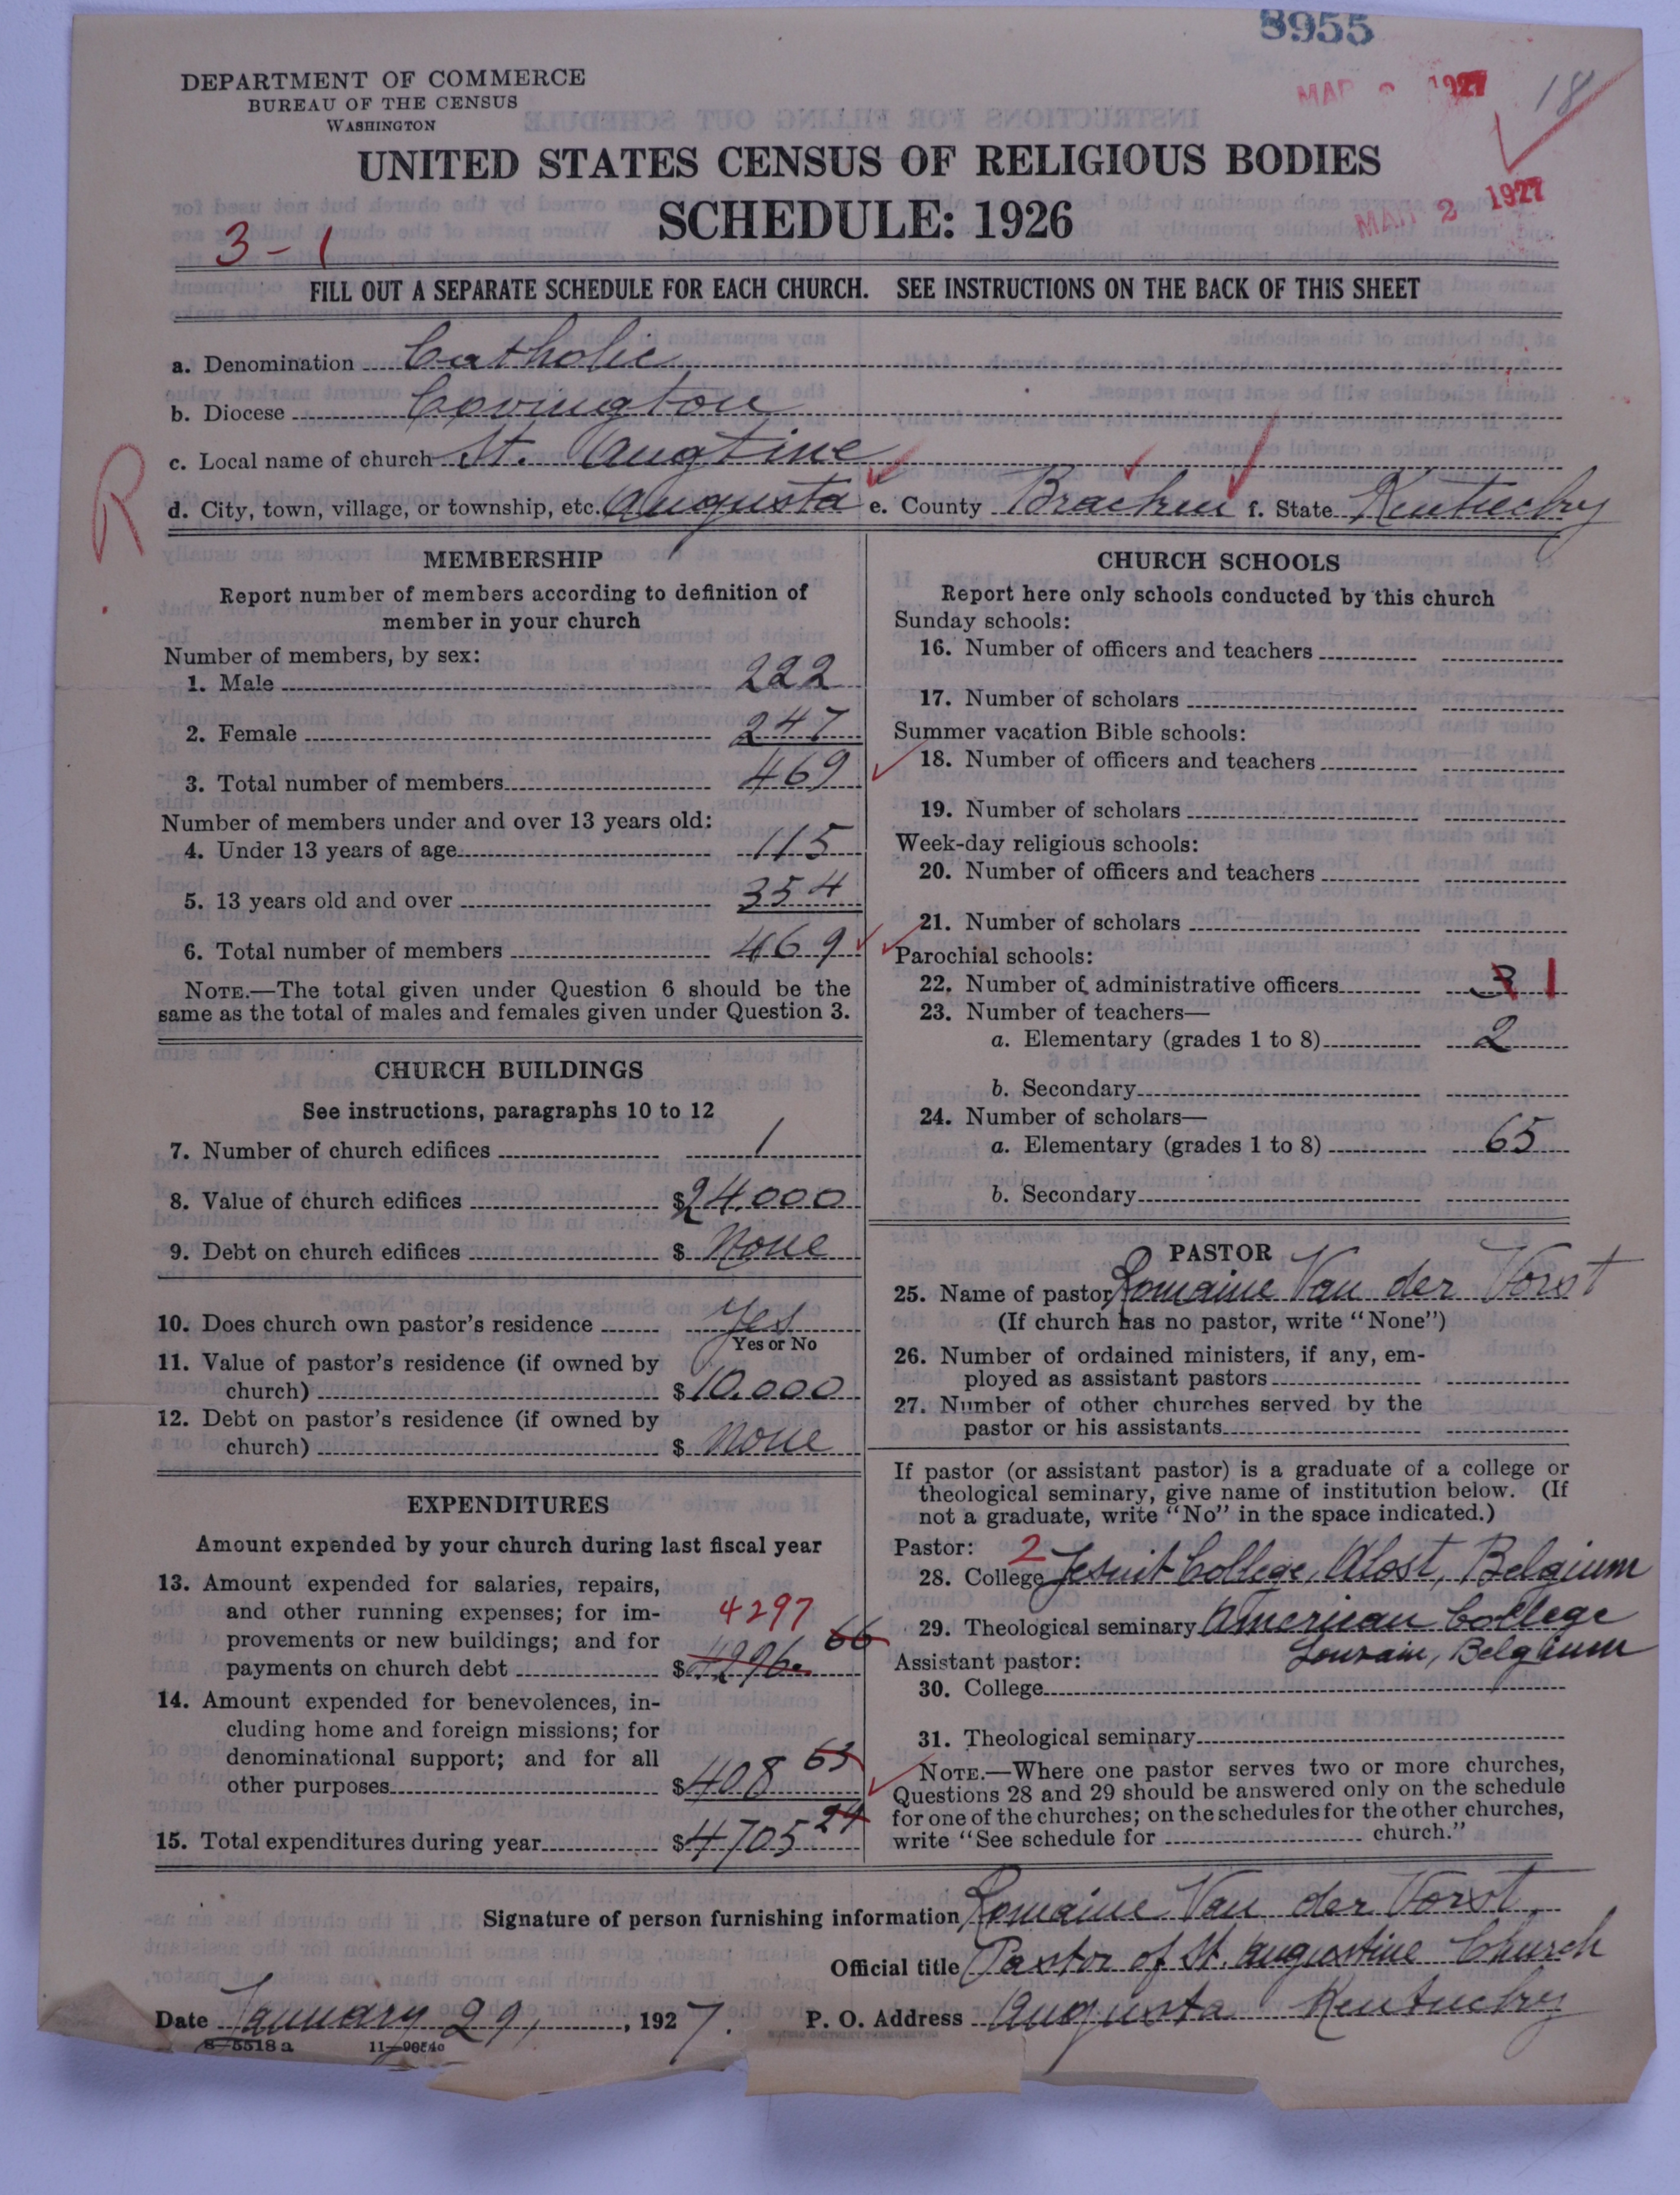 8955
DEPARTMENT OF COMMERCE
BUREAU OF THE CENSUS
WASHINGTON
MAR 1927
18
UNITED STATES CENSUS OF RELIGIOUS BODIES
SCHEDULE: 1926
MAR 2 1927
3-1
FILL OUT A SEPARATE SCHEDULE FOR EACH CHURCH. SEE INSTRUCTIONS ON THE BACK OF THIS SHEET
a. Denomination Catholic
b. Diocese Covington
c. Local name of church St. Augtine
R
d. City, town, village, or township, etc. Augusta e. County Bracken f. State Kentucky
MEMBERSHIP
Report number of members according to definition of
member in your church
Number of members, by sex:
1. Male 222
2. Female 247
3. Total number of members 469
Number of members under and over 13 years old:
4. Under 13 years of age 115
5. 13 years old and over 354
6. Total number of members 469
NOTE.—The total given under Question 6 should be the
same as the total of males and females given under Question 3.
CHURCH BUILDINGS
See instructions, paragraphs 10 to 12
7. Number of church edifices 1
8. Value of church edifices $24.000
9. Debt on church edifices $ None
10. Does church own pastor's residence Yes
Yes or No
11. Value of pastor's residence (if owned by
church) $10.000
12. Debt on pastor's residence (if owned by
church) $ None
EXPENDITURES
Amount expended by your church during last fiscal year
13. Amount expended for salaries, repairs,
and other running expenses; for im-
4297
provements or new buildings; and for
66
payments on church debt $4296.
14. Amount expended for benevolences, in-
cluding home and foreign missions; for
denominational support; and for all
63
other purposes $408
24
15. Total expenditures during year $4705
CHURCH SCHOOLS
Report here only schools conducted by this church
Sunday schools:
16. Number of officers and teachers
17. Number of scholars
Summer vacation Bible schools:
18. Number of officers and teachers
19. Number of scholars
Week-day religious schools:
20. Number of officers and teachers
21. Number of scholars
Parochial schools:
22. Number of administrative officers 3 1
23. Number of teachers—
a. Elementary (grades 1 to 8) 2
b. Secondary
24. Number of scholars—
a. Elementary (grades 1 to 8) 65
b. Secondary
PASTOR
25. Name of pastor Romaine Van der Vorst
(If church has no pastor, write "None")
26. Number of ordained ministers, if any, em-
ployed as assistant pastors
27. Number of other churches served by the
pastor or his assistants
If pastor (or assistant pastor) is a graduate of a college or
theological seminary, give name of institution below. (If
not a graduate, write "No" in the space indicated.)
Pastor: 2
28. College Jesuit College, Alost, Belgium
29. Theological seminary American College
Louvain, Belgium
Assistant pastor:
30. College
31. Theological seminary
NOTE.—Where one pastor serves two or more churches,
Questions 28 and 29 should be answered only on the schedule
for one of the churches; on the schedules for the other churches,
write "See schedule for church."
Signature of person furnishing information Romaine Van der Vorst
Official title Pastor of St. Augustine Church
Date January 29, , 1927. P. O. Address Augusta Kentucky
8—5518 a